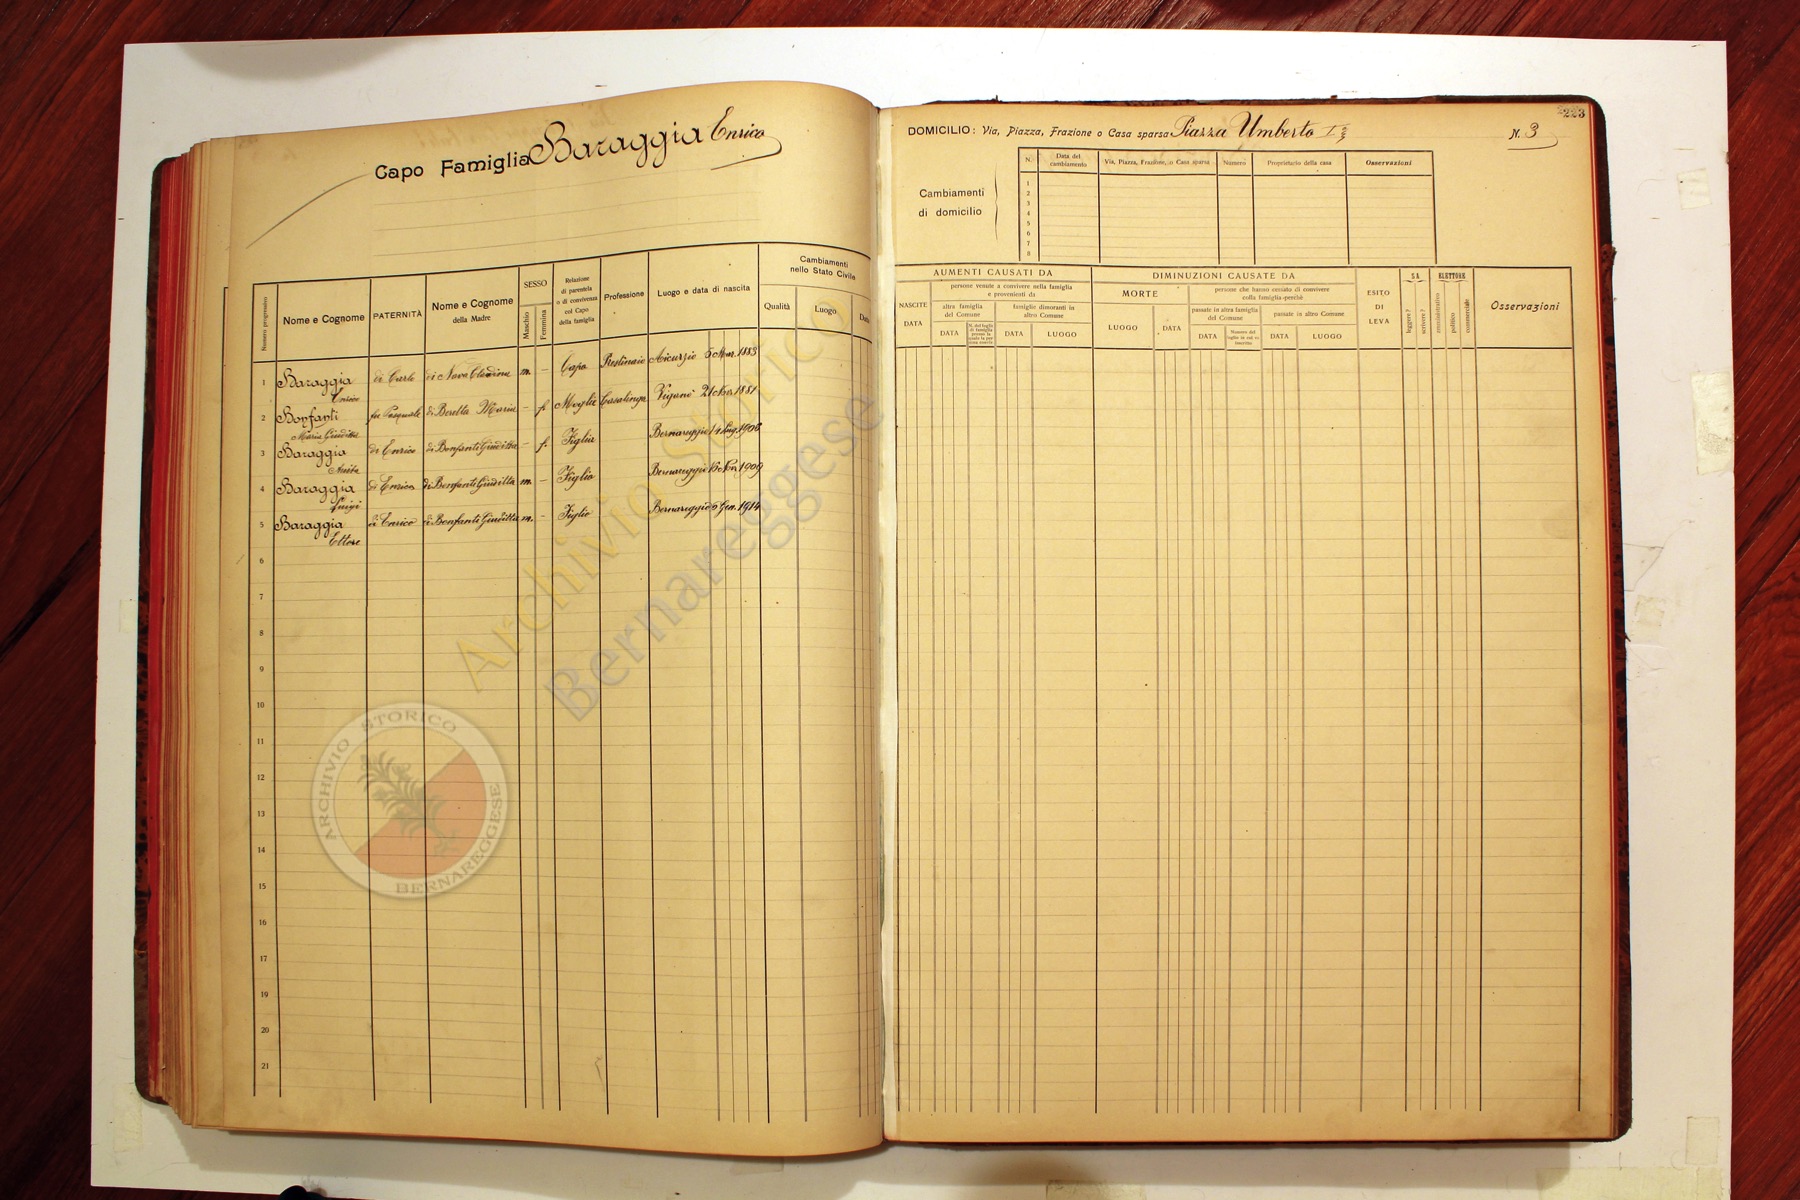 Capo Famiglia Baraggia Enrico
Numero progressivo
Nome e Cognome
PATERNITÀ
Nome e Cognome
della Madre
SESSO
Maschio
Femmina
Relazione
di parentela
o di convivenza
col Capo
della famiglia
Professione
Luogo e data di nascita
Cambiamenti
nello Stato Civile
Qualità
Luogo
Data
1 Baraggia di Carlo di Nava m. – Capo Prestinaio Aicurzio 5 Mar. 1883
Enrico
2 Bonfanti fu Pasquale di Beretta Maria – f. Moglie Casalinga Viganò 21 Nov. 1881
Maria Giuditta
3 Baraggia di Enrico di Bonfanti Giuditta – f. Figlia Bernareggio 14 Lug. 1906
4 Baraggia di Enrico di Bonfanti Giuditta m. – Figlio Bernareggio 16 Nov. 1909
Luigi
5 Baraggia di Enrico di Bonfanti Giuditta m. – Figlio Bernareggio 6 Gen. 1914
Ettore
6
7
8
9
10
11
12
13
14
15
16
17
18
19
20
21
Archivio Storico
Bernareggese
ARCHIVIO STORICO
BERNAREGGESE
223
DOMICILIO: Via, Piazza, Frazione o Casa sparsa Piazza Umberto I°
N. 3
Cambiamenti
di domicilio
N.
Data del
cambiamento
Via, Piazza, Frazione, o Casa sparsa
Numero
Proprietario della casa
Osservazioni
1
2
3
4
5
6
7
8
AUMENTI CAUSATI DA
NASCITE
DATA
persone venute a convivere nella famiglia
e provenienti da
altra famiglia
del Comune
DATA
famiglie dimoranti in
altro Comune
DATA
LUOGO
DIMINUZIONI CAUSATE DA
MORTE
LUOGO
DATA
persone che hanno cessato di convivere
colla famiglia-perchè
passate in altra famiglia
del Comune
DATA
Numero del
foglio in cui es.
inscritto
passate in altro Comune
DATA
LUOGO
ESITO
DI
LEVA
SA
leggere?
scrivere?
ELETTORE
amministrativo
politico
commerciale
Osservazioni